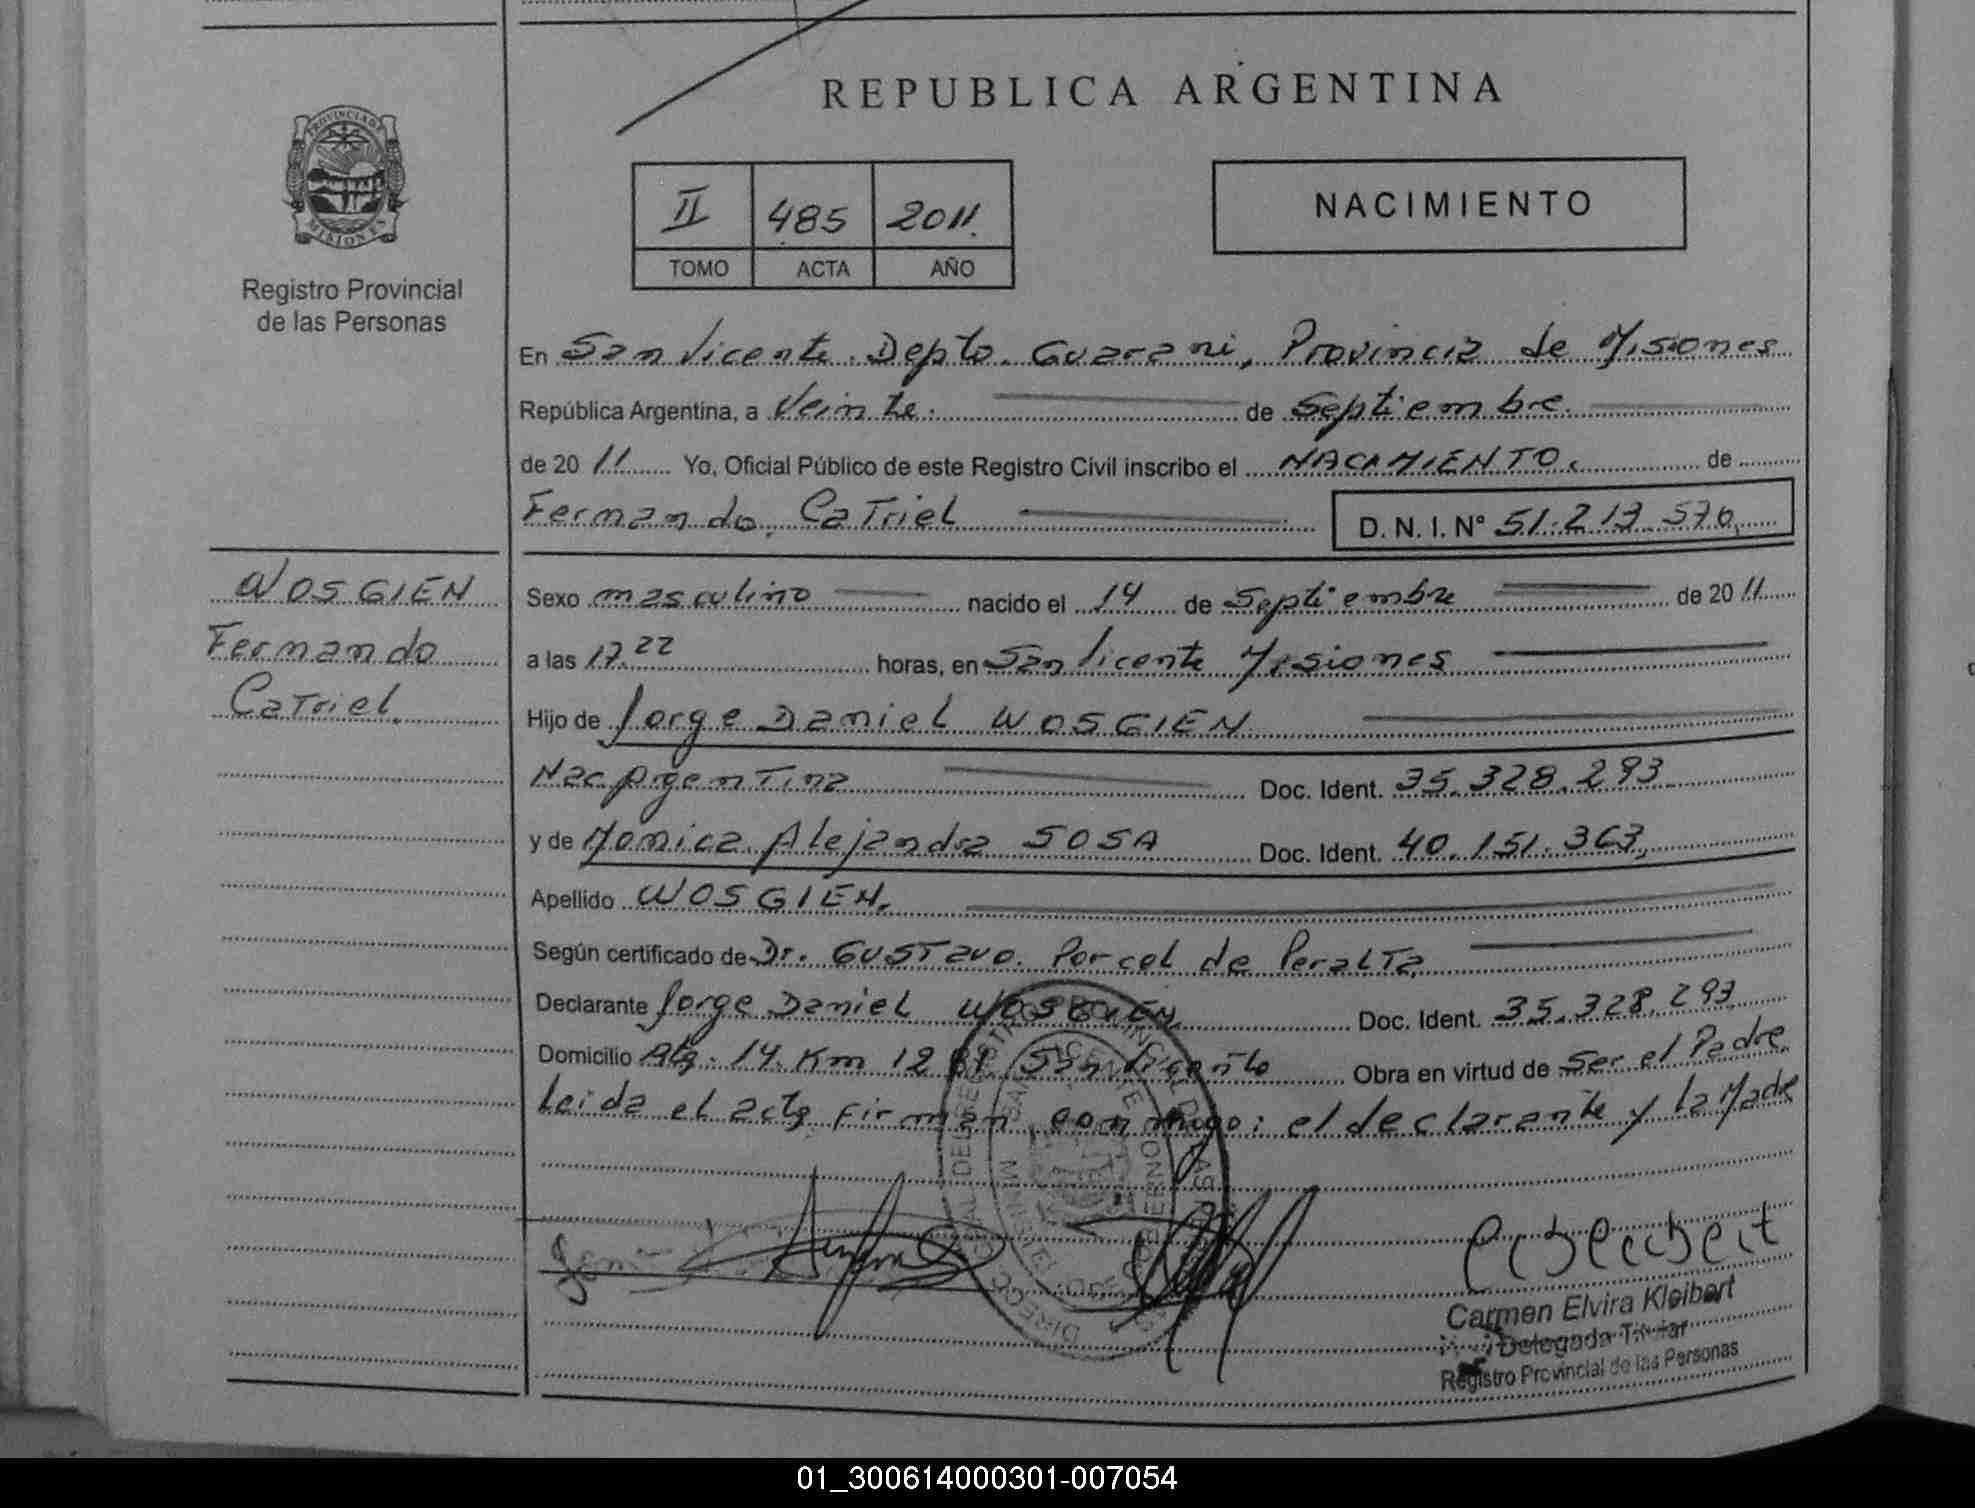 REPUBLICA ARGENTINA
PROVINCIA DE
MISIONES
Registro Provincial
de las Personas
II 485 2011
TOMO ACTA AÑO
NACIMIENTO
En San Vicente. Depto. Guarani, Provincia de Misiones
República Argentina, a Veinte. de Septiembre.
de 20 11 Yo, Oficial Público de este Registro Civil inscribo el NACIMIENTO. de
Fernando Catriel D. N. I. N° 51.213.570
WOSGIEN
Fernando
Catriel
Sexo masculino nacido el 14 de Septiembre de 20 11
a las 17.22 horas, en San Vicente Misiones
Hijo de Jorge Daniel WOSGIEN
Nac Argentina Doc. Ident. 35.328.293
y de Monica Alejandra SOSA Doc. Ident. 40.151.363
Apellido WOSGIEN.
Según certificado de Dr. Gustavo Porcel de Peralta
Declarante Jorge Daniel WOSGIEN Doc. Ident. 35.328.293
Domicilio 14. Km 12 San Vicente Obra en virtud de Ser el Padre
Leida el acta firman conmigo: el declarante y la Madre
Carmen Elvira Kleibert
Delegada Titular
Registro Provincial de las Personas
01_300614000301-007054